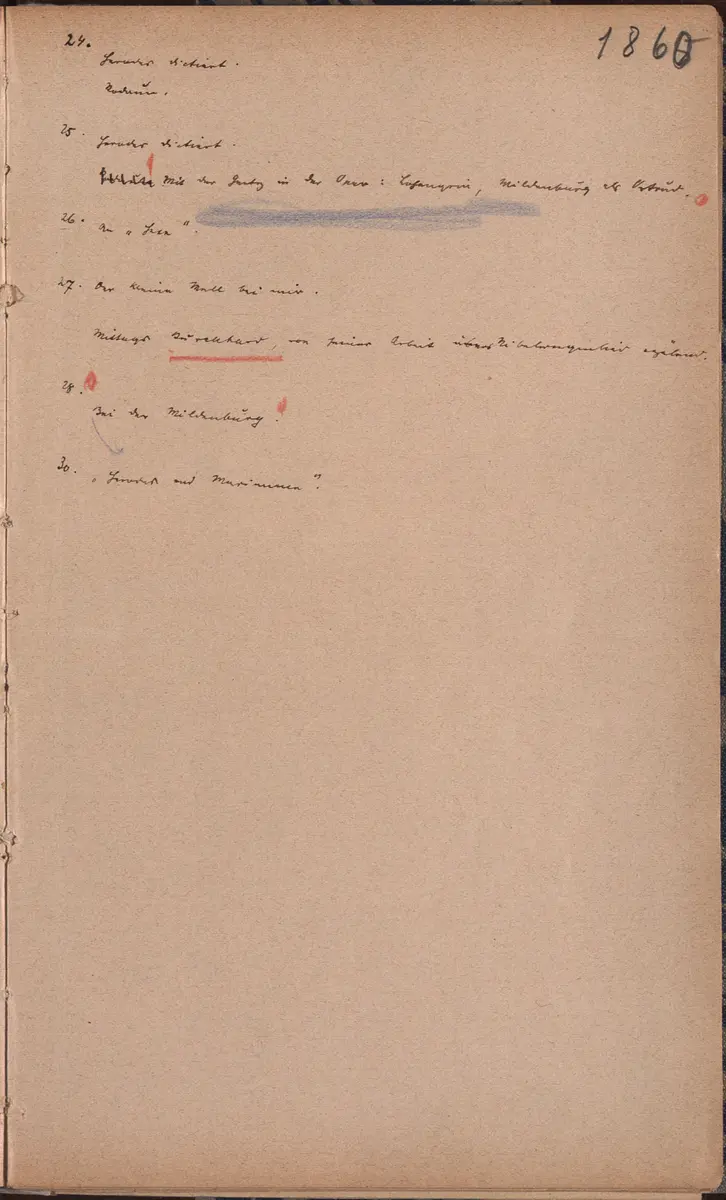 1860
24.
Herodes dictiert.
Rodaun.
25.
Herodes dictiert.
Mit der in der Oper: Lohengrin, Mildenburg als Ortrud.
26. An „Hexe".
27. Der kleine Moll bei mir.
Mittags Burckhard, von seiner Arbeit übers Nibelungenlied erzälend.
28.
Bei der Mildenburg.
30. „Herodes und Mariamne".